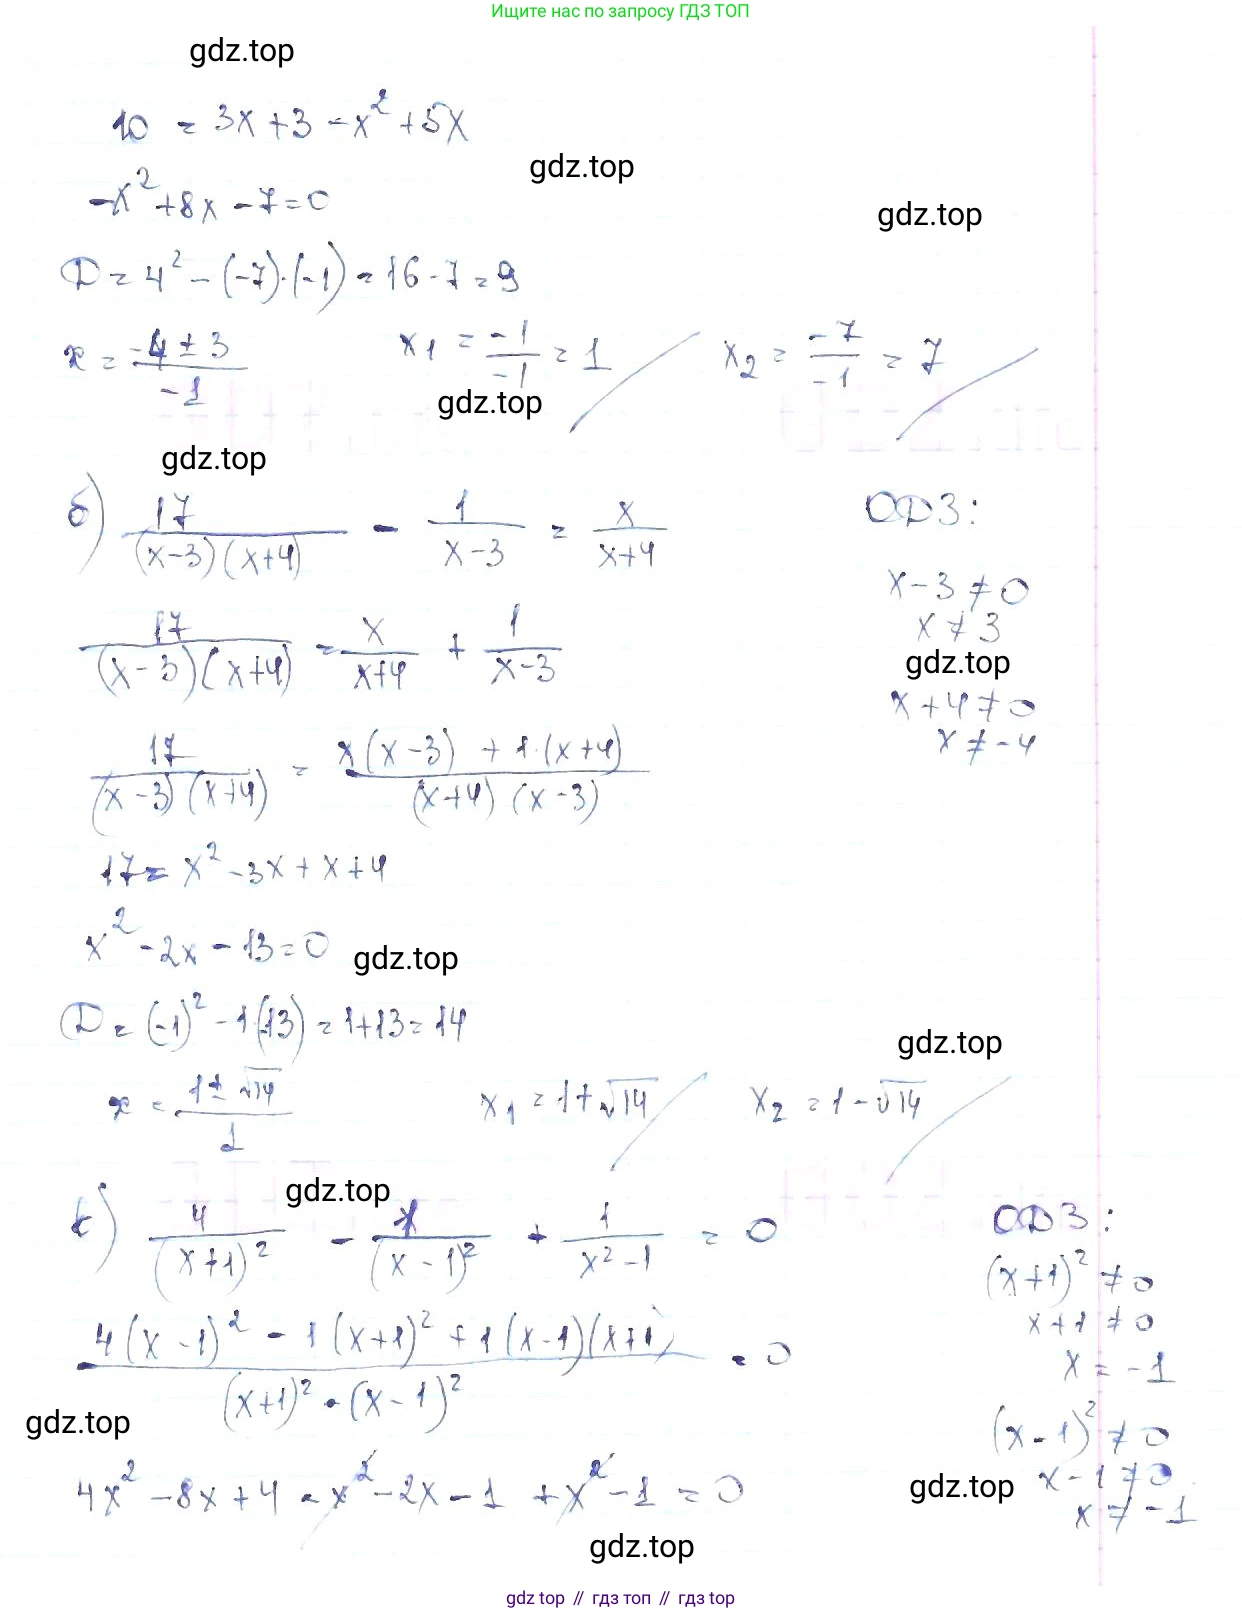 Ищите нас по запросу ГДЗ ТОП
gdz.top
10 = 3x + 3 - x² + 5x
gdz.top
-x² + 8x - 7 = 0
gdz.top
D = 4² - (-7)·(-1) = 16 - 7 = 9
x = (-4 ± 3)/(-1)   x₁ = (-1)/(-1) = 1   x₂ = (-7)/(-1) = 7
gdz.top
gdz.top
б) 17/((x-3)(x+4)) - 1/(x-3) = x/(x+4)
ОДЗ:
x - 3 ≠ 0
x ≠ 3
gdz.top
x + 4 ≠ 0
x ≠ -4
17/((x-3)(x+4)) = x/(x+4) + 1/(x-3)
17/((x-3)(x+4)) = (x(x-3) + 1·(x+4))/((x+4)(x-3))
17 = x² - 3x + x + 4
x² - 2x - 13 = 0
gdz.top
D = (-1)² - 1·(-13) = 1 + 13 = 14
gdz.top
x = (1 ± √14)/1   x₁ = 1 + √14   x₂ = 1 - √14
gdz.top
4/(x+1)² - 1/(x-1)² + 1/(x²-1) = 0
ОДЗ:
(x+1)² ≠ 0
x + 1 ≠ 0
x = -1
(x-1)² ≠ 0
x - 1 ≠ 0
x ≠ -1
(4(x-1)² - 1(x+1)² + 1(x-1)(x+1))/((x+1)²·(x-1)²) = 0
gdz.top
4x² - 8x + 4 - x² - 2x - 1 + x² - 1 = 0
gdz.top
gdz.top
gdz top // гдз топ // gdz top